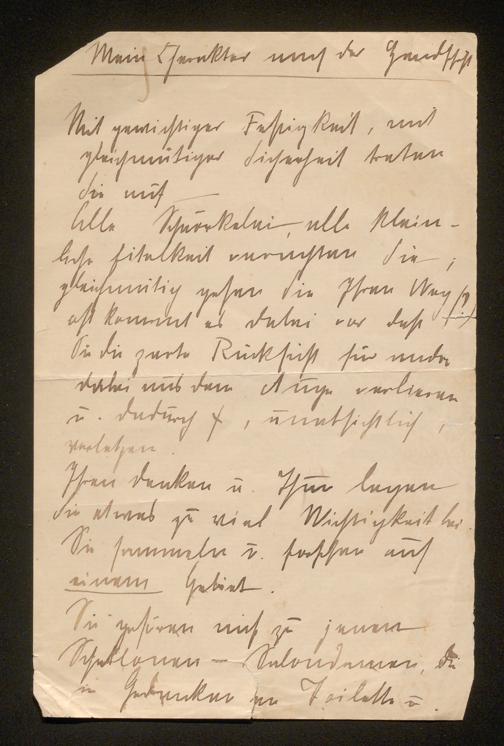 Mein Charakter nach der Handschft
Mit gewichtiger Festigkeit, mit
gleichmütiger Sicherheit treten
Sie auf
Alle Schnörkelei, alle klein-
liche Eitelkeit verachten Sie,
gleichmütig gehen Sie Ihren Weg
oft kommt es dabei vor daß
Sie die zarte Rücksicht für andre
dabei aus dem Auge verlieren
u. dadurch, unabsichtlich,
verletzen.
Ihren denken u. Thun legen
Sie etwas zu viel Wichtigkeit bei.
Sie sammeln u. forschen auf
einem Gebiet.
Sie gehören nicht zu jenen
Schablonen - Salondamen, die
in Gedanken an Toilette u.